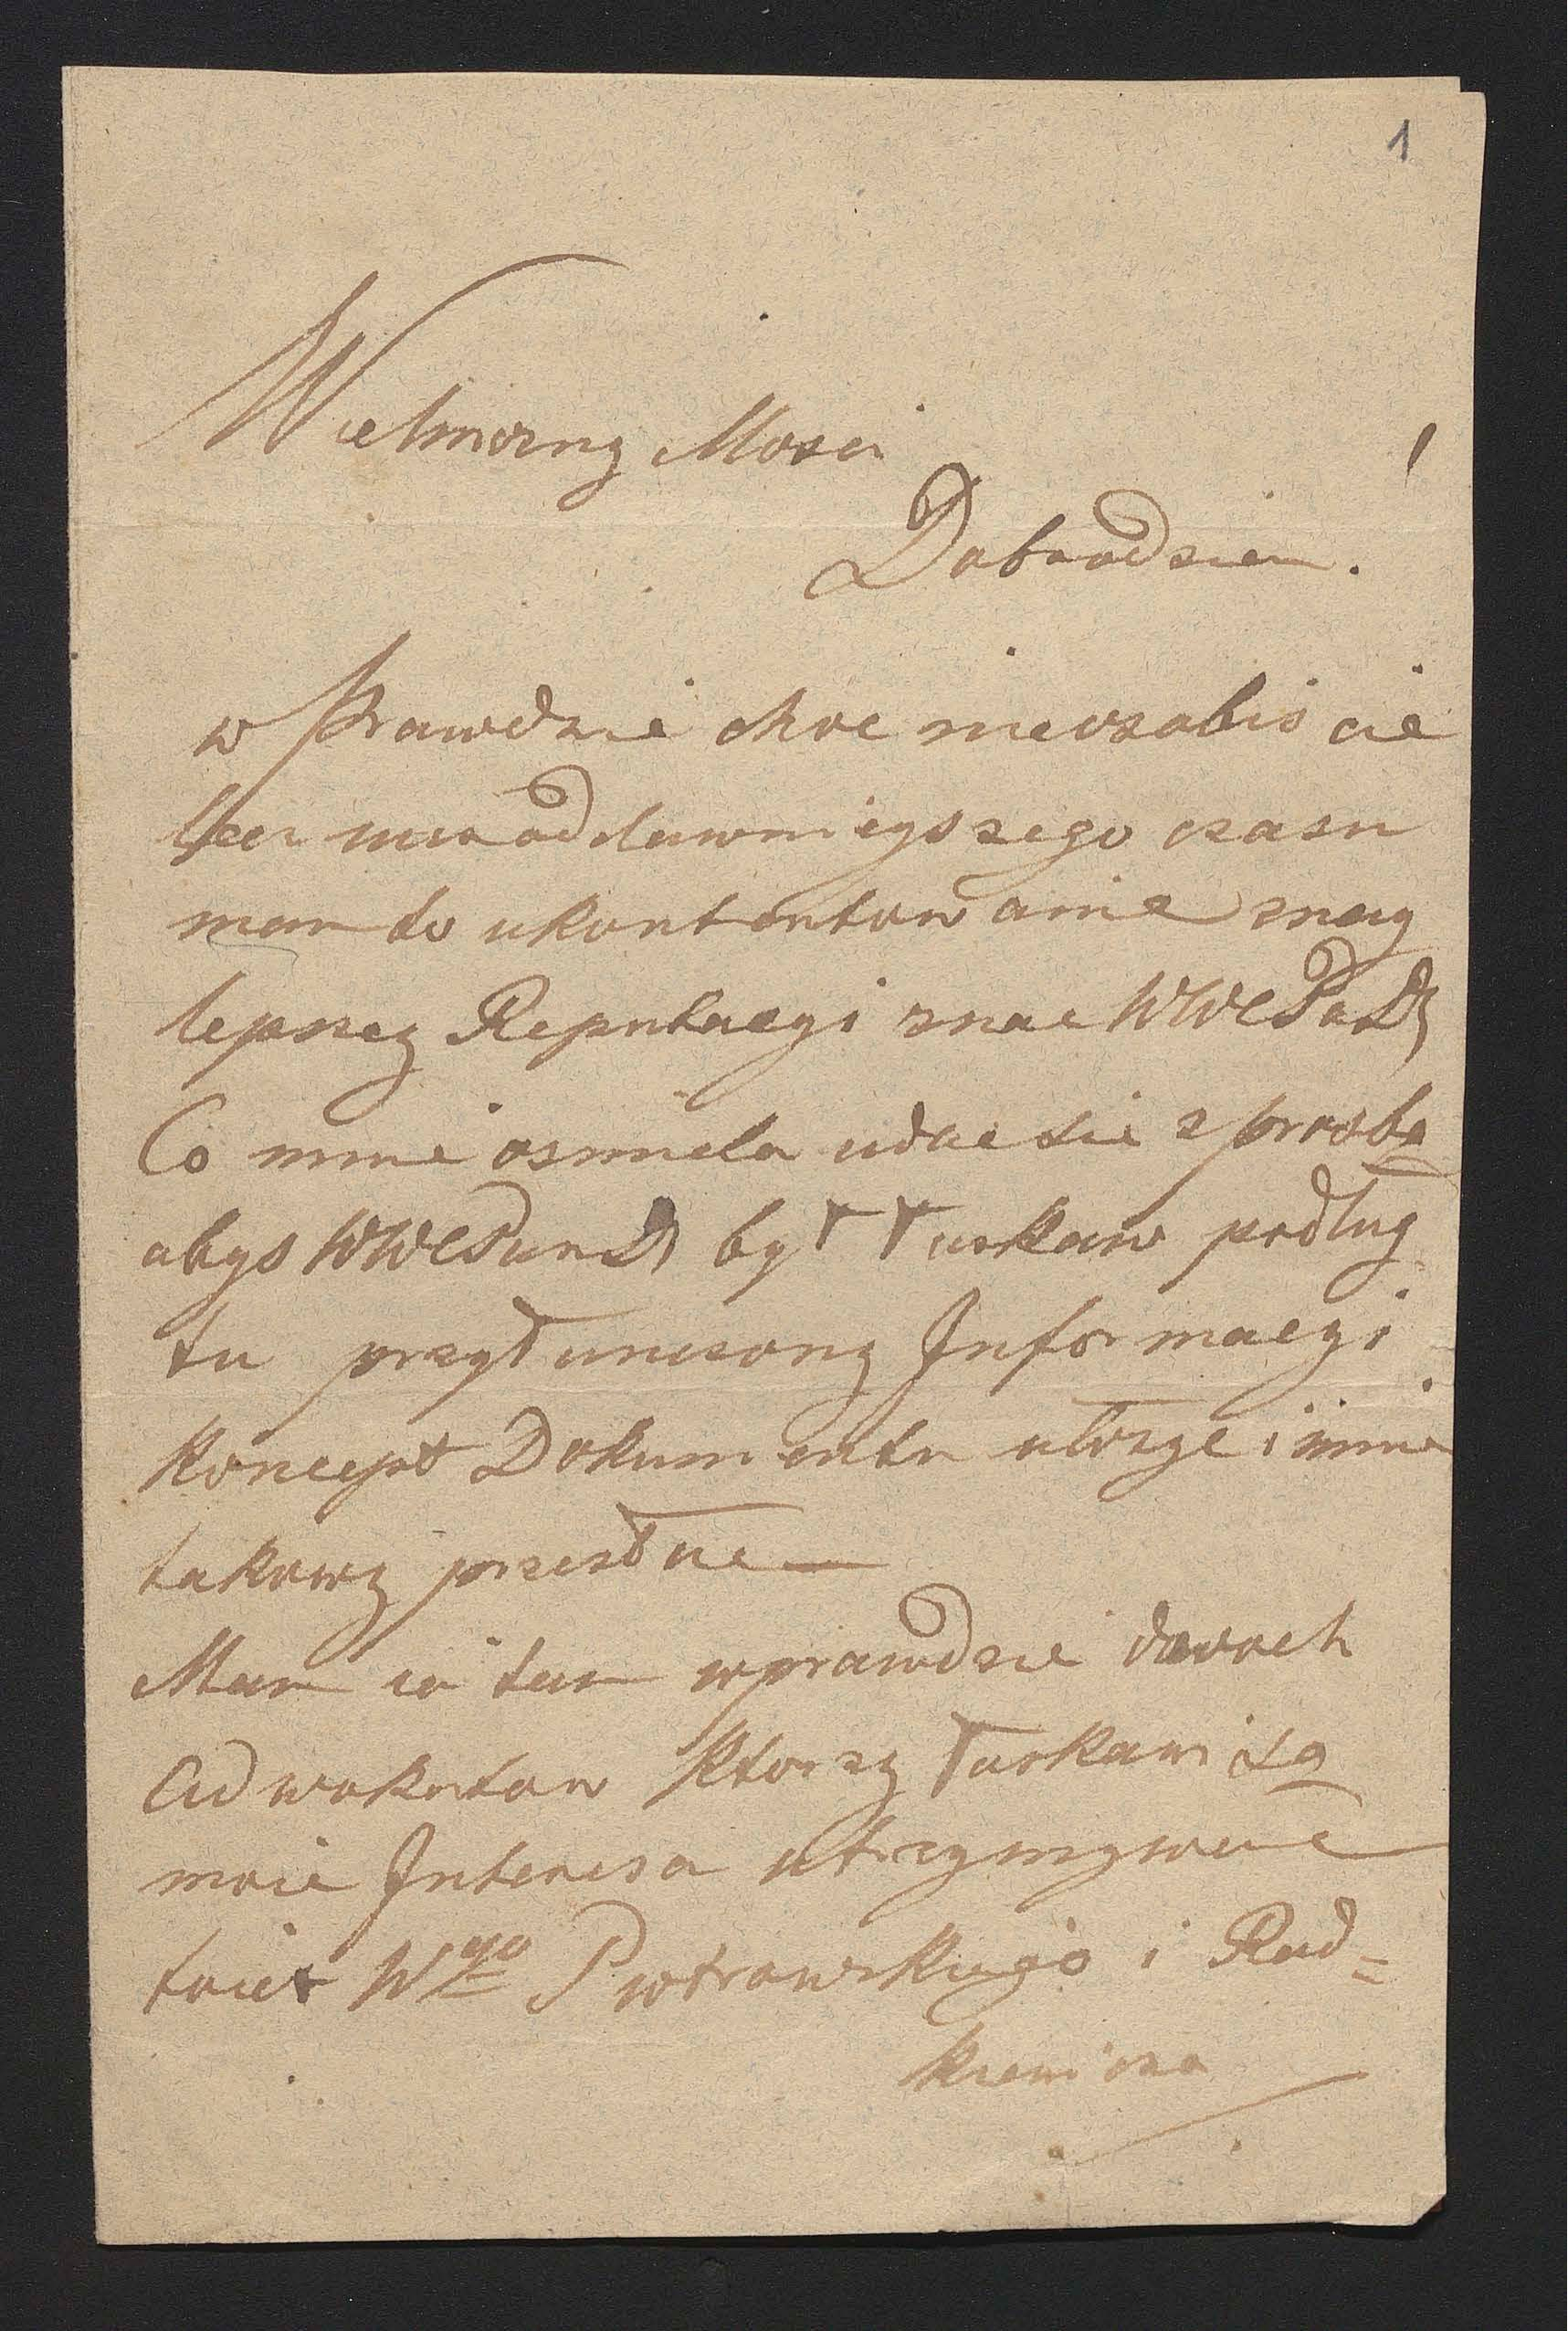 1
Wielmozny Mosci
Dobrodzieiu.
w Prawdzie choc nieosobis cie
lecz iuz od dawnieyszego czasu
mam to ukontentowanie znay
lepszey Reputacyi znac WWCPanD
Co mnie osmiela udac sie z prosbą
abys WWCPanD był łaskaw podlug
tu przyłunczony Informacyi
koncept Dokumentu ułożyc i mnie
takowy przesłac —
Mam ia tam wprawdzie dwoch
Adwokatow ktorzy łaskawi są
moie Interesa utrzymywac
toiest Wgo Piotrowskiego i Rad=
kiewicza